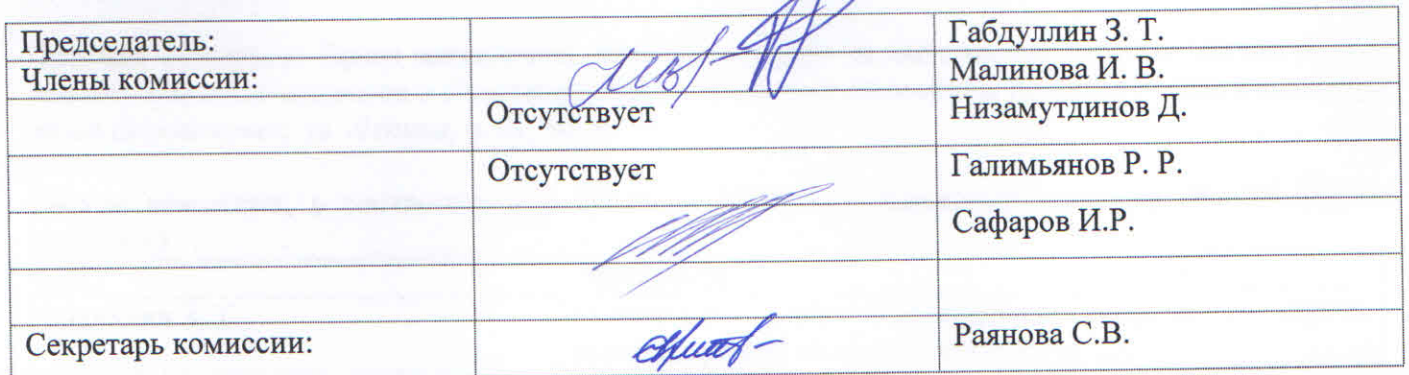 Председатель: Габдуллин З. Т.
Члены комиссии: Малинова И. В.
Отсутствует Низамутдинов Д.
Отсутствует Галимьянов Р. Р.
Сафаров И.Р.
Секретарь комиссии: Раянова С.В.